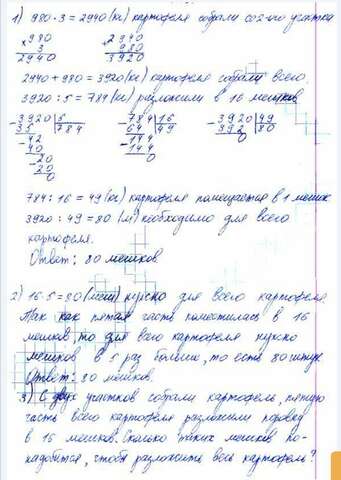 1) 980·3 = 2940 (кг) картофеля собрали со 2-го участка
×980 +2940
3 980
2940 3920
2940 + 980 = 3920 (кг) картофеля собрали всего.
3920 : 5 = 784 (кг) разложили в 16 мешков
-3920|5 -784|16 -3920|49
35 |784 64 |49 392 |80
-42 -144 0
40 144
-20 0
20
0
784 : 16 = 49 (кг) картофеля помещается в 1 мешок
3920 : 49 = 80 (м) необходимо для всего
картофеля.
Ответ: 80 мешков.
2) 16·5 = 80 (меш) нужно для всего картофеля.
Так как пятая часть поместилась в 16
мешков, то для всего картофеля нужно
мешков в 5 раз больше, то есть 80 штук
Ответ: 80 мешков.
3) С двух участков собрали картофель, пятую
часть всего картофеля разложили поровну
в 16 мешков. Сколько таких мешков по-
надобится, чтобы разложить весь картофель?